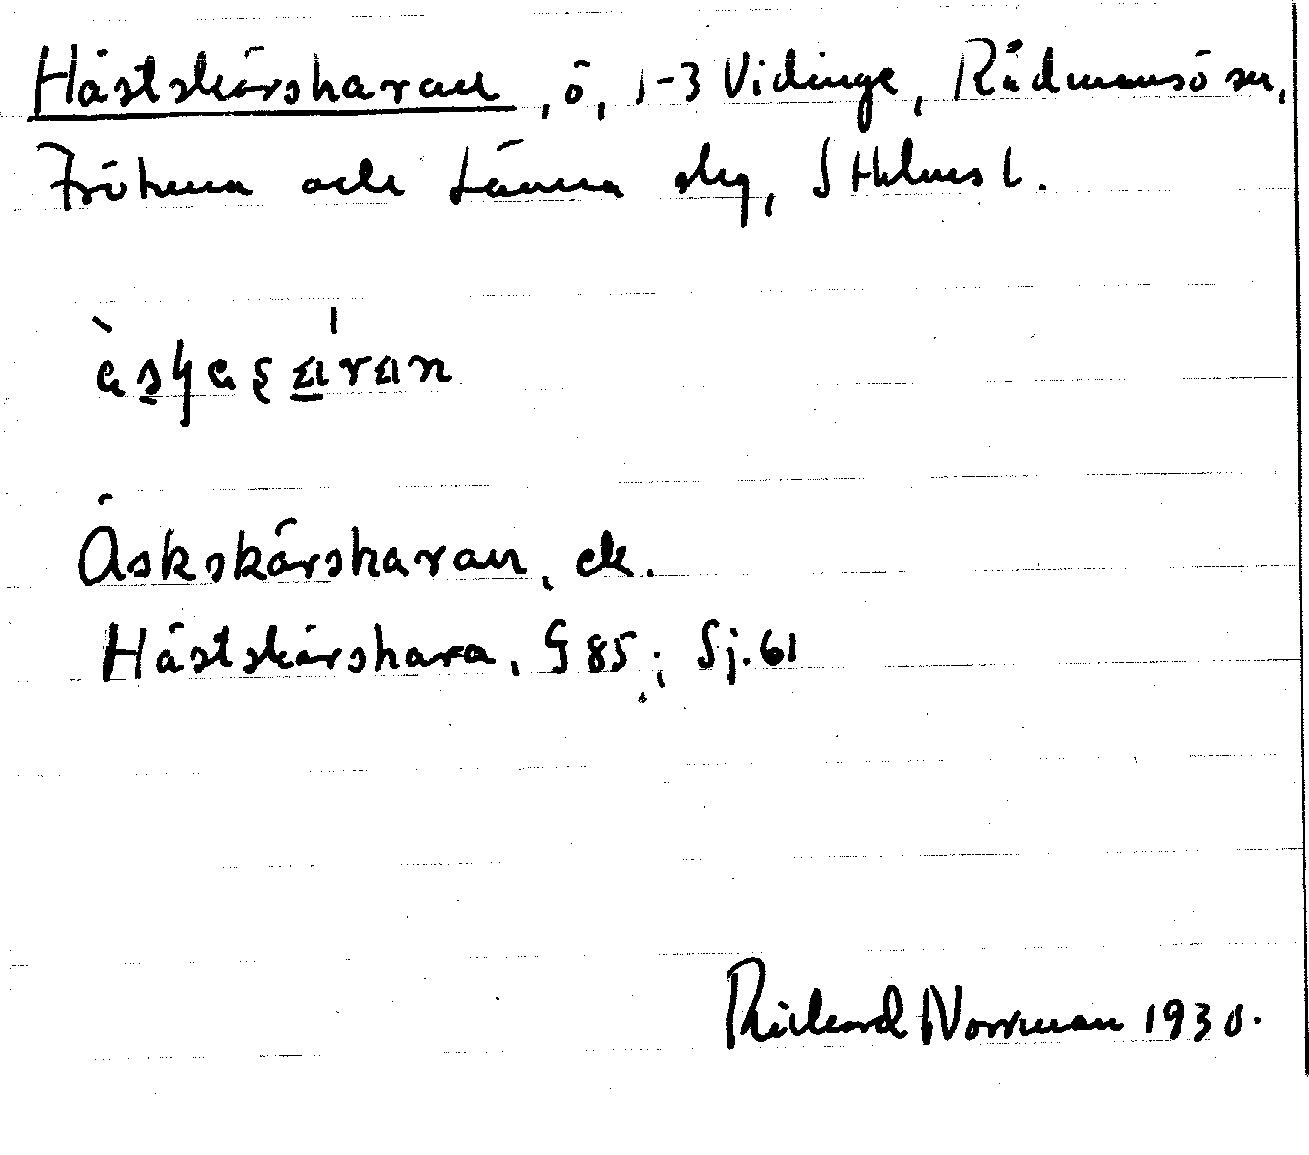 Hästskärsharan, ö, 1-3 Vidinge, Rådmansö sn,
Frötuna och Länna slg, Sthlms l.
Äskskärsharan, ek.
Hästskärshara, G 85; Sj. 61
Rickard Norrman 1930.